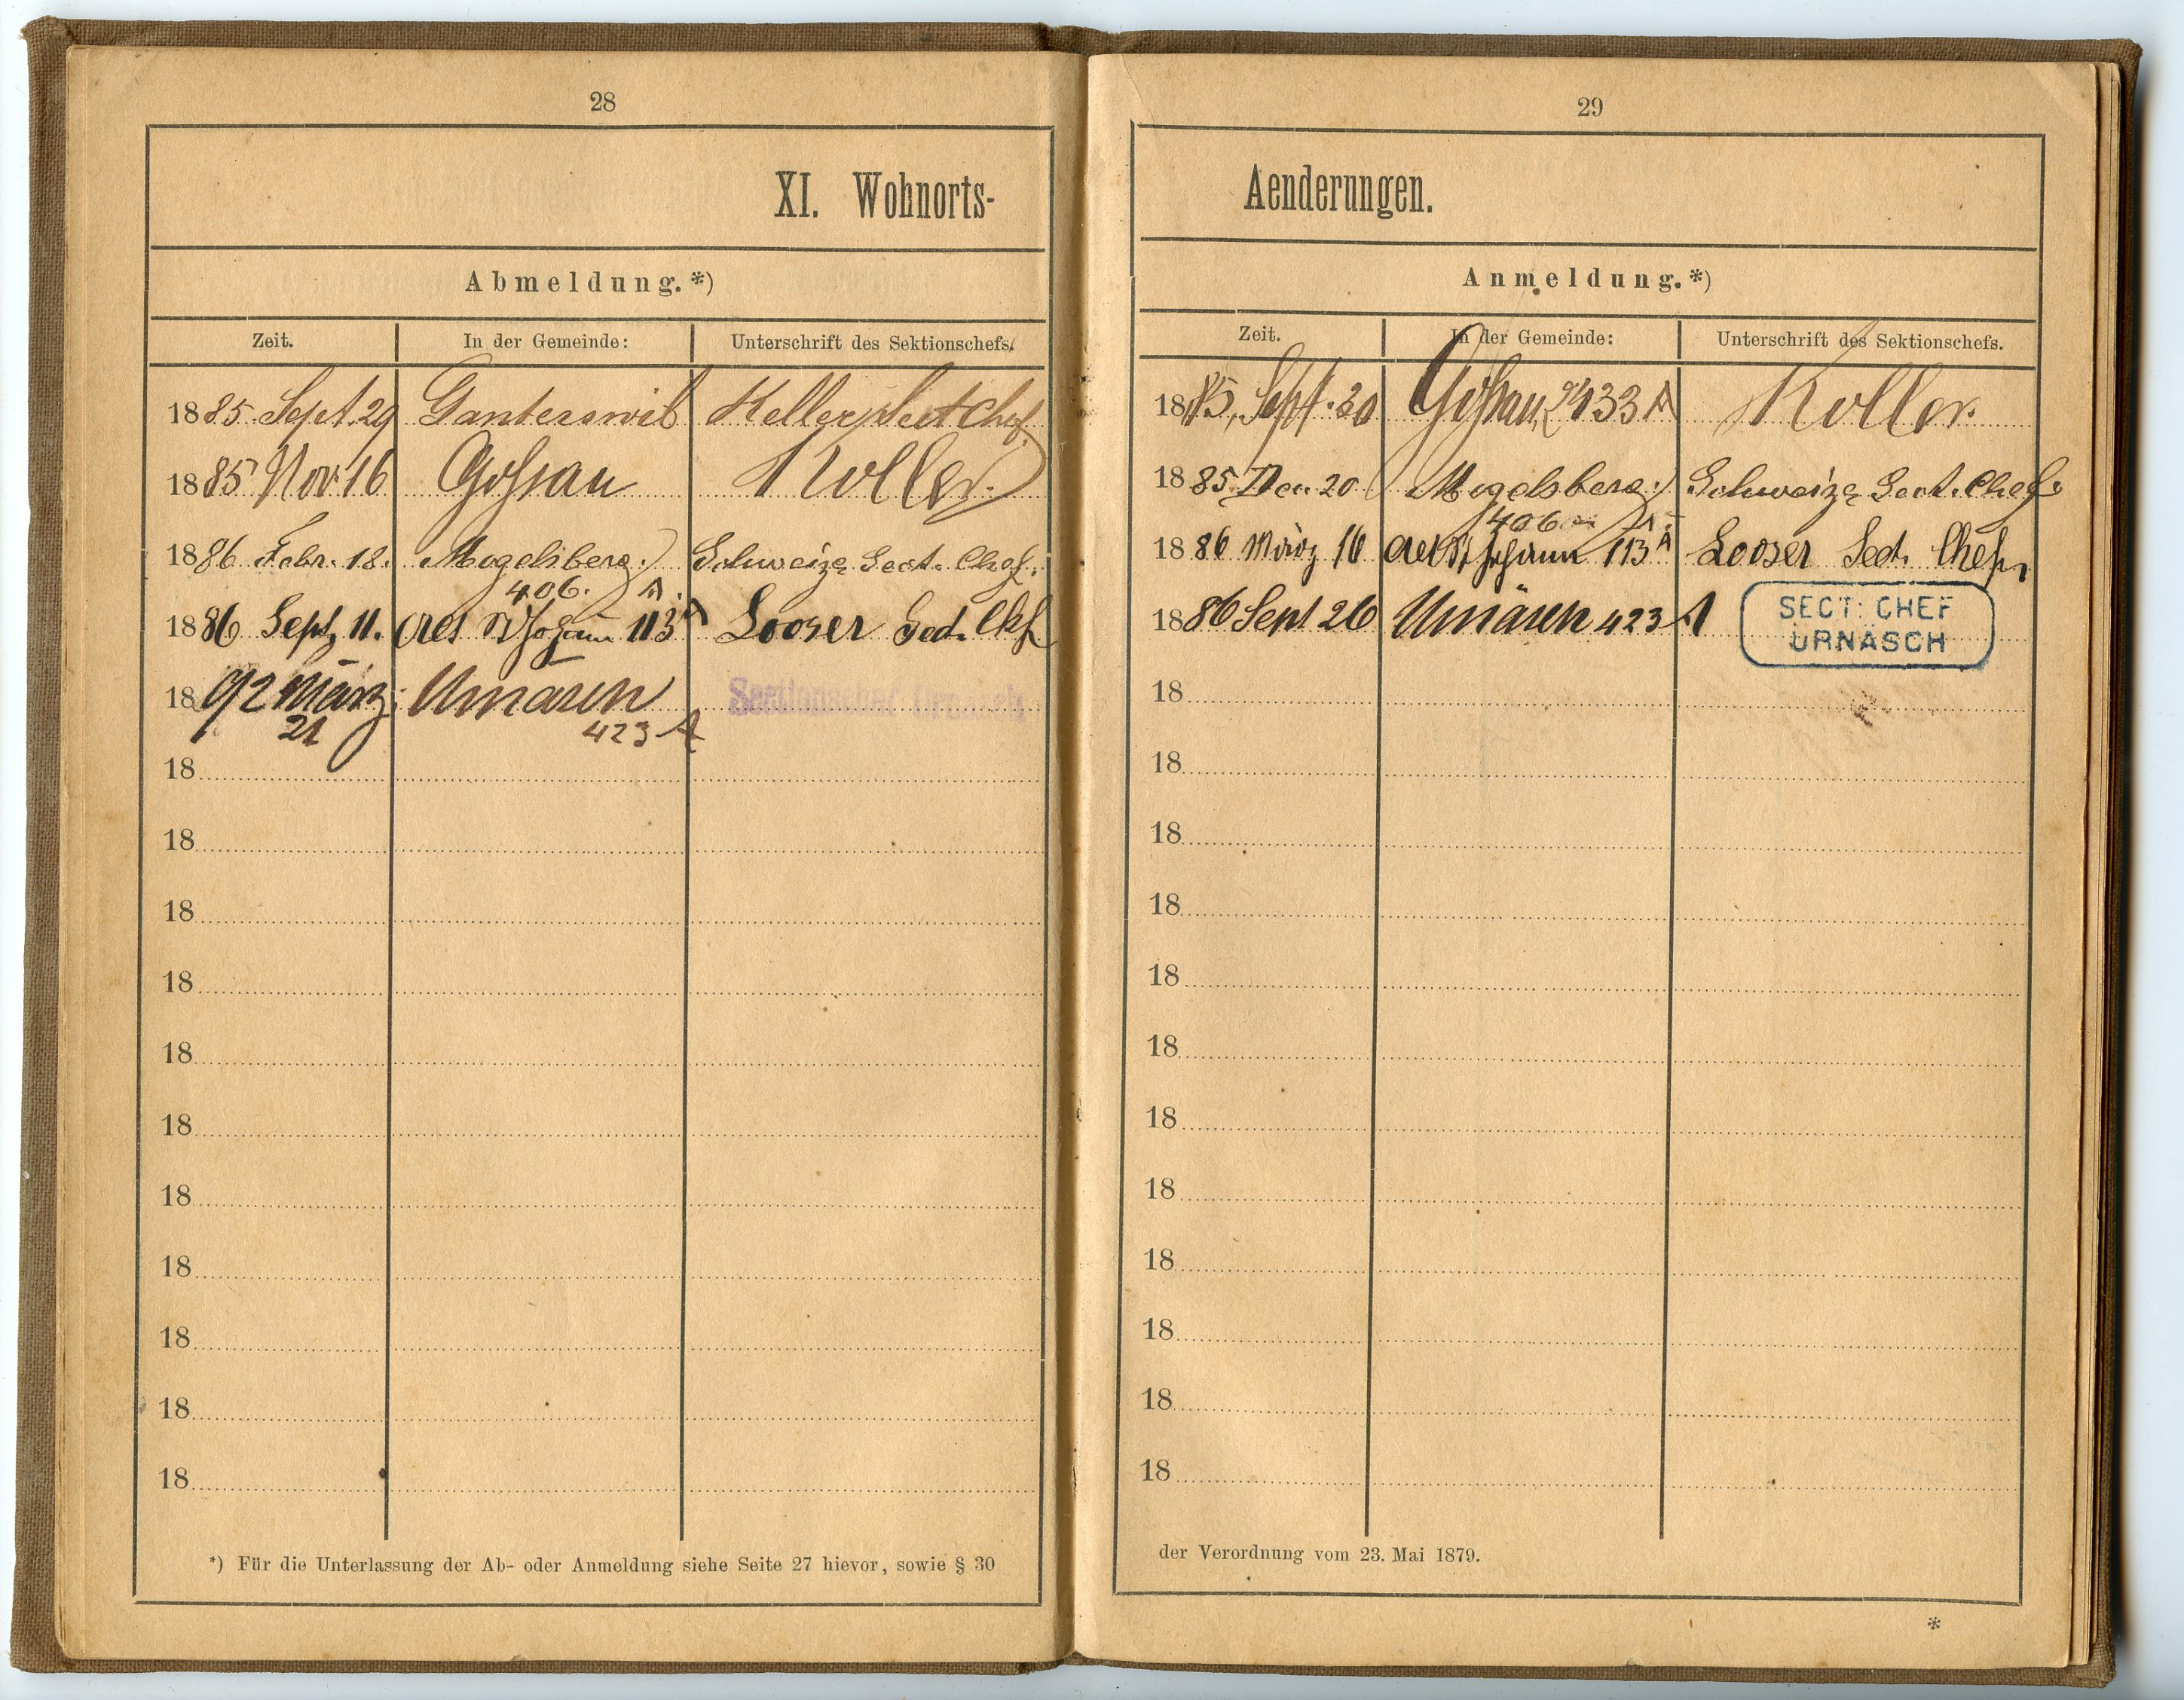 28
XI. Wohnorts-
Abmeldung.*)
Zeit. In der Gemeinde: Unterschrift des Sektionschefs.
1885 Sept. 29 Ganterswil Keller Sect Chef.
1885 Nov. 16 Goßau Koller.
1886 Febr. 18. Mogelsberg. Schweizer Sect. Chef.
406. A.
1886 Sept. 11. Alt St Johann 113 A Looser Sect. Chef
1892 März Urnäsch Sectionschef Urnäsch
21 423 A
18
18
18
18
18
18
18
18
18
18
18
*) Für die Unterlassung der Ab- oder Anmeldung siehe Seite 27 hievor, sowie § 30
29
Aenderungen.
Anmeldung.*)
Zeit. In der Gemeinde: Unterschrift des Sektionschefs.
1885, Sept. 30 Goßau, 433 A Koller.
1885 Dec. 20 Mogelsberg. Schweizer Sect. Chef.
406 A.
1886 März 16 Alt St Johann 113 A Looser Sect. Chef
1886 Sept 26 Urnäsch 423 A SECT: CHEF
URNÄSCH
18
18
18
18
18
18
18
18
18
18
18
18
der Verordnung vom 23. Mai 1879.
*